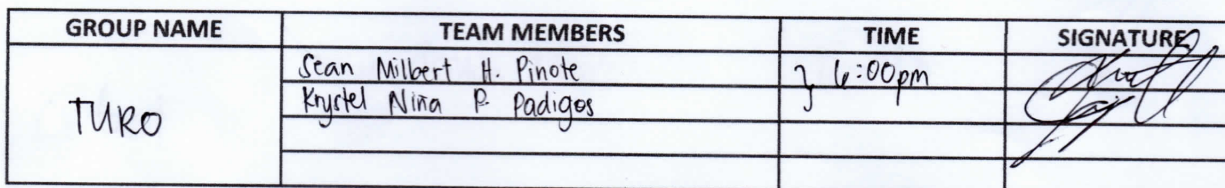 GROUP NAME TEAM MEMBERS TIME SIGNATURE
Sean Milbert H. Pinote } 6:00pm
TURO
Krystel Niña P. Padigos